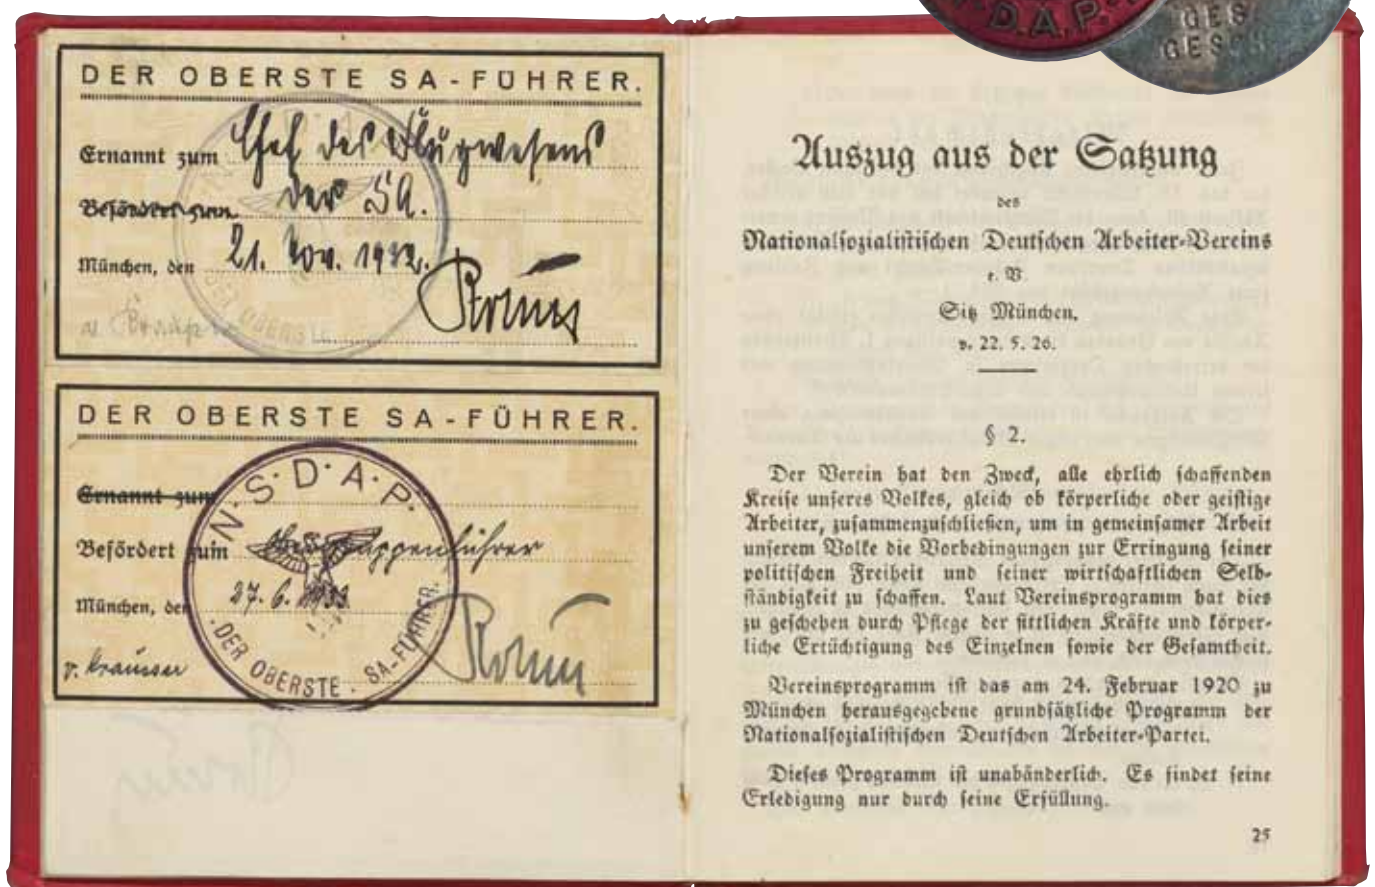 D.A.P.
GES
GESCH
DER OBERSTE SA-FÜHRER.
Ernannt zum Chef des Flugwesens
Befördert zum der SA.
München, den 21. Nov. 1932.
Röhm
DER OBERSTE
DER OBERSTE SA-FÜHRER.
Ernannt zum
Befördert zum Obergruppenführer
München, den 27. 6. 1933
N.S.D.A.P.
DER OBERSTE. SA-FÜHRER.
v. Krausser
Röhm
Auszug aus der Satzung
des
Nationalsozialistischen Deutschen Arbeiter-Vereins
e. V
Sitz München.
v. 22. 5. 26.
§ 2.
Der Verein hat den Zweck, alle ehrlich schaffenden
Kreise unseres Volkes, gleich ob körperliche oder geistige
Arbeiter, zusammenzuschließen, um in gemeinsamer Arbeit
unserem Volke die Vorbedingungen zur Erringung seiner
politischen Freiheit und seiner wirtschaftlichen Selb-
ständigkeit zu schaffen. Laut Vereinsprogramm hat dies
zu geschehen durch Pflege der sittlichen Kräfte und körper-
liche Ertüchtigung des Einzelnen sowie der Gesamtheit.
Vereinsprogramm ist das am 24. Februar 1920 zu
München herausgegebene grundsätzliche Programm der
Nationalsozialistischen Deutschen Arbeiter-Partei.
Dieses Programm ist unabänderlich. Es findet seine
Erledigung nur durch seine Erfüllung.
25